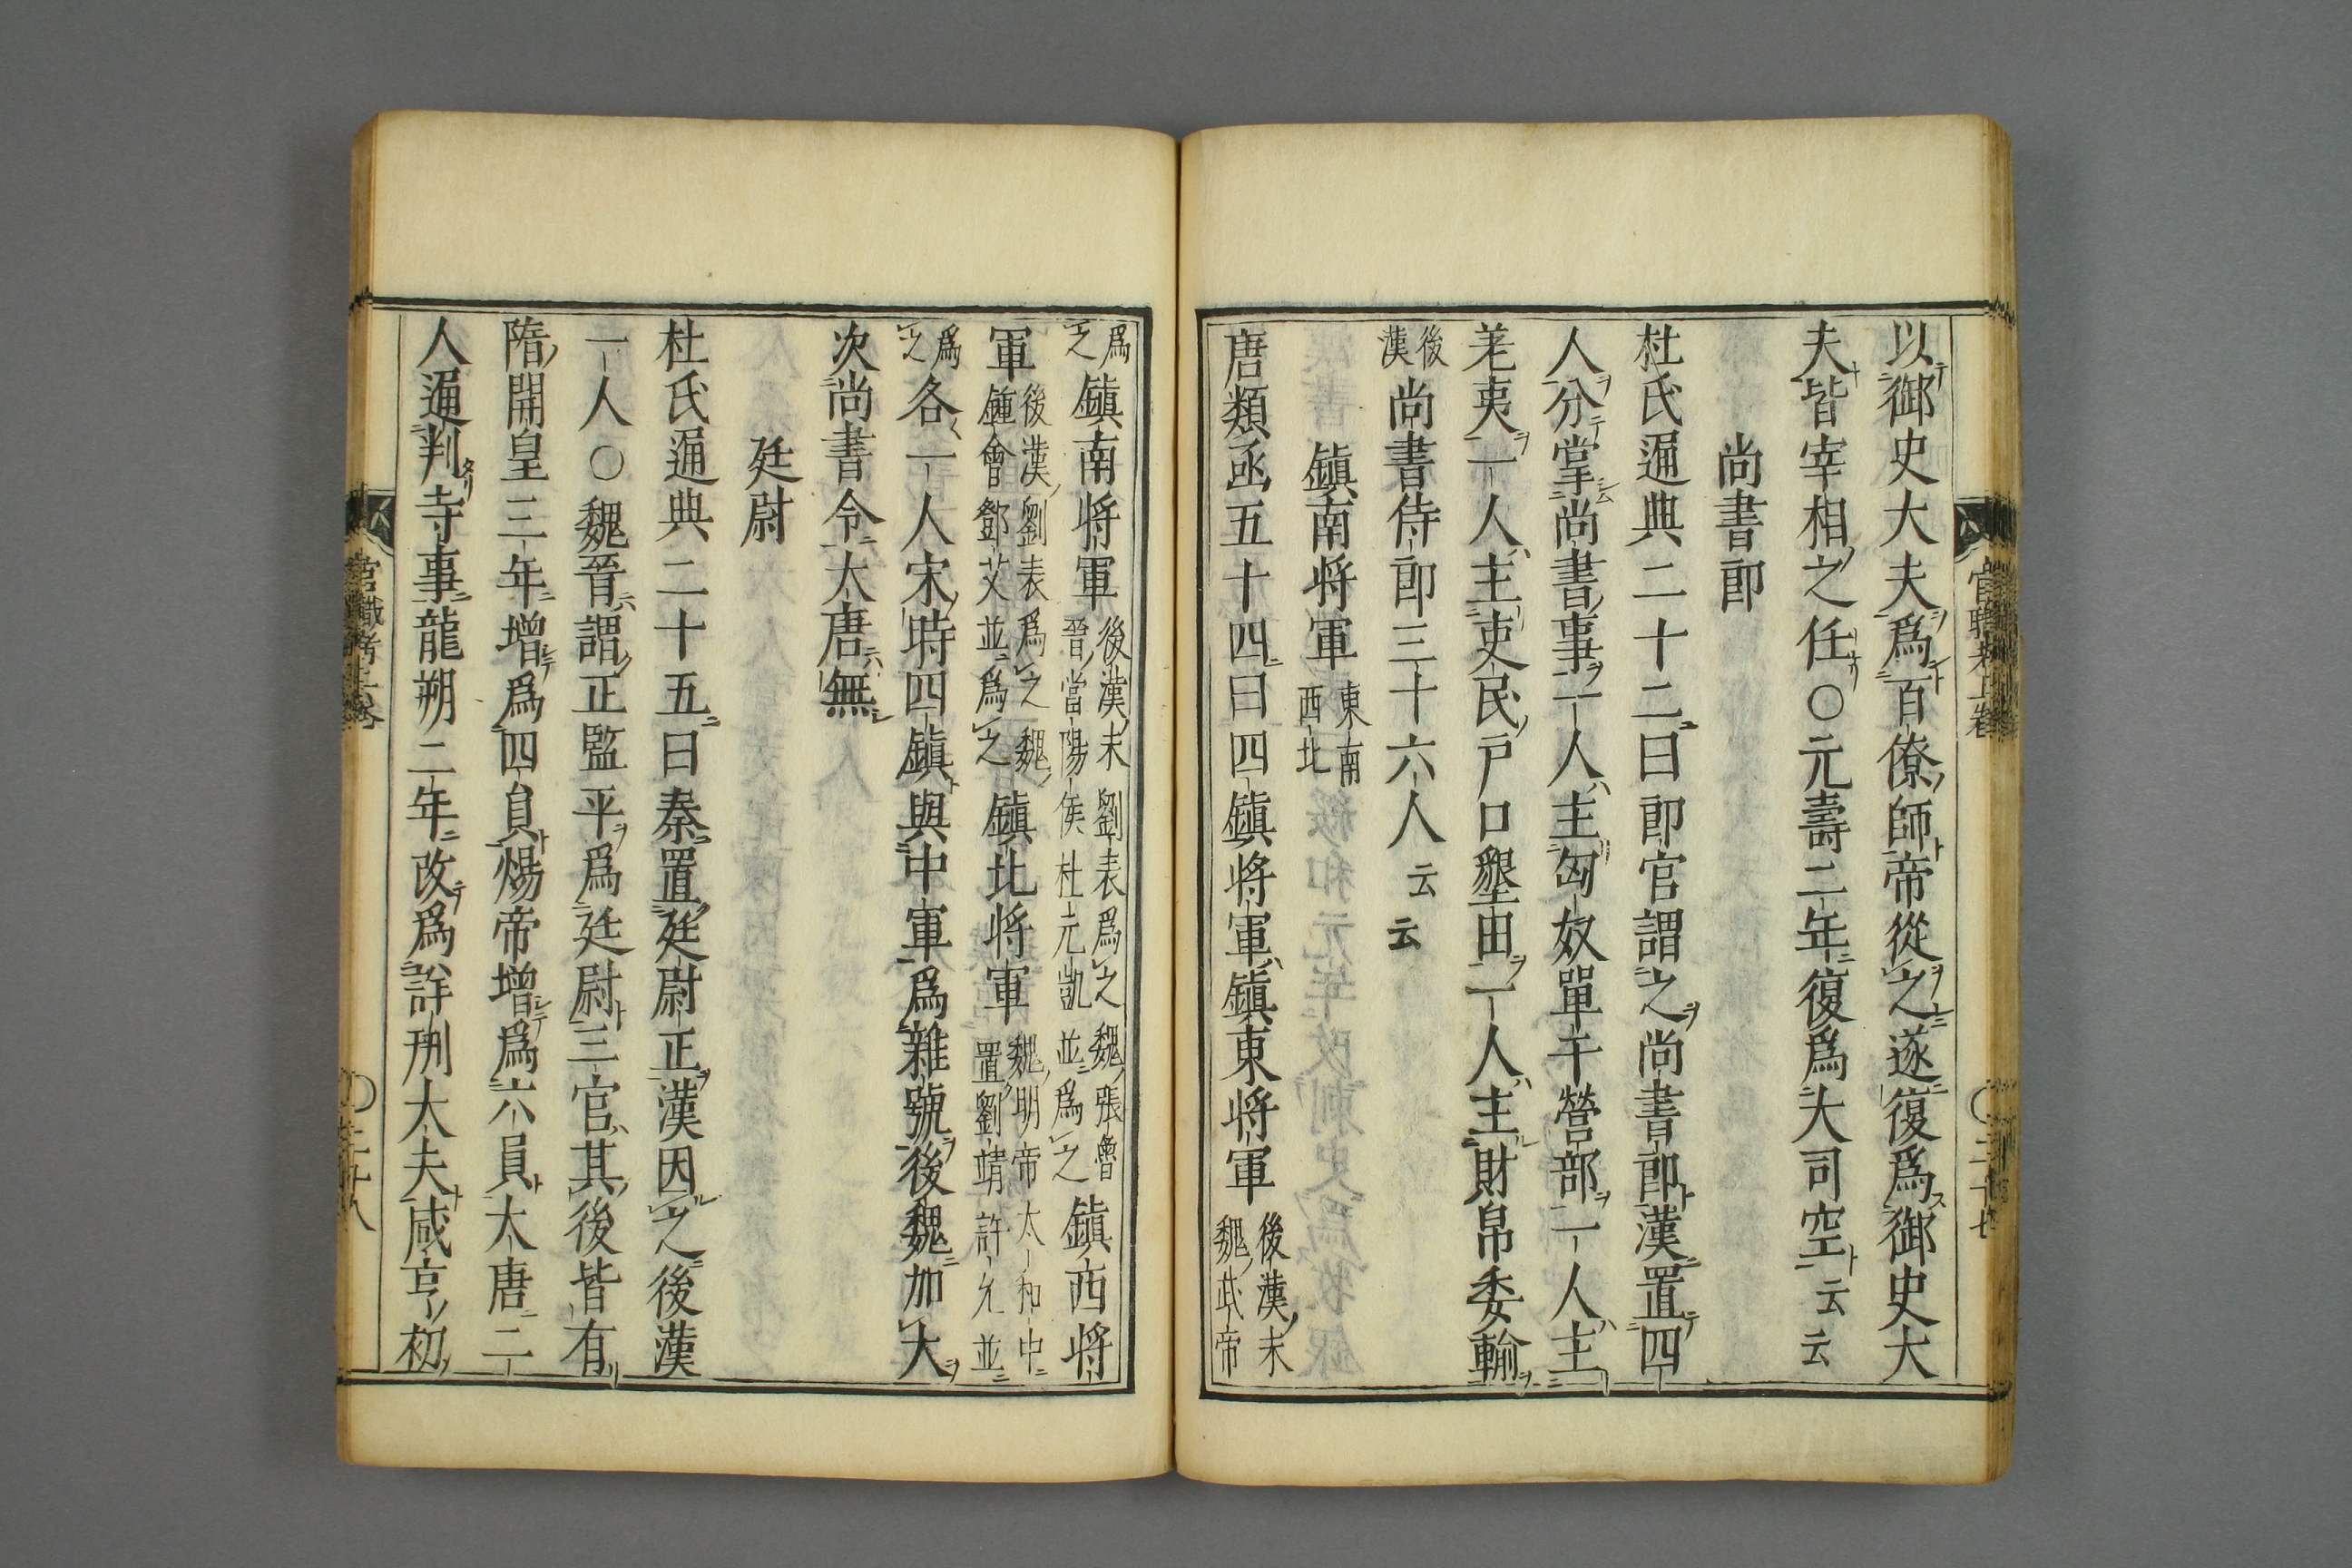 以御史大夫爲百僚師帝從之遂復爲御史大
夫皆宰相之任〇元壽二年復爲大司空云云
尚書郎
杜氏通典二十二曰郎官謂之尚書郎漢置四
人分掌尚書事一人主匈奴單于營部一人主
羌夷一人主吏民戶口墾田一人主財帛委輸
後漢尚書侍郎三十六人云云
鎮南将軍東南西北
唐類函五十四曰四鎮将軍鎮東将軍後漢末魏武帝
爲之鎮南将軍後漢末劉表爲之魏張魯晉當陽侯杜元凱並爲之鎮西将
軍後漢劉表爲之魏鍾會鄧艾並爲之鎮北将軍魏明帝太和中置劉靖許允並
爲之各一人宋時四鎮與中軍爲雜號後魏加大
次尚書令大唐無
廷尉
杜氏通典二十五曰秦置廷尉正漢因之後漢
一人〇魏晉謂正監平爲廷尉三官其後皆有
隋開皇三年增爲四員煬帝增爲六員大唐二
人通判寺事龍朔二年改爲詳刑大夫咸亨初
官職考上卷
〇二十七
官職考上卷
〇二十八